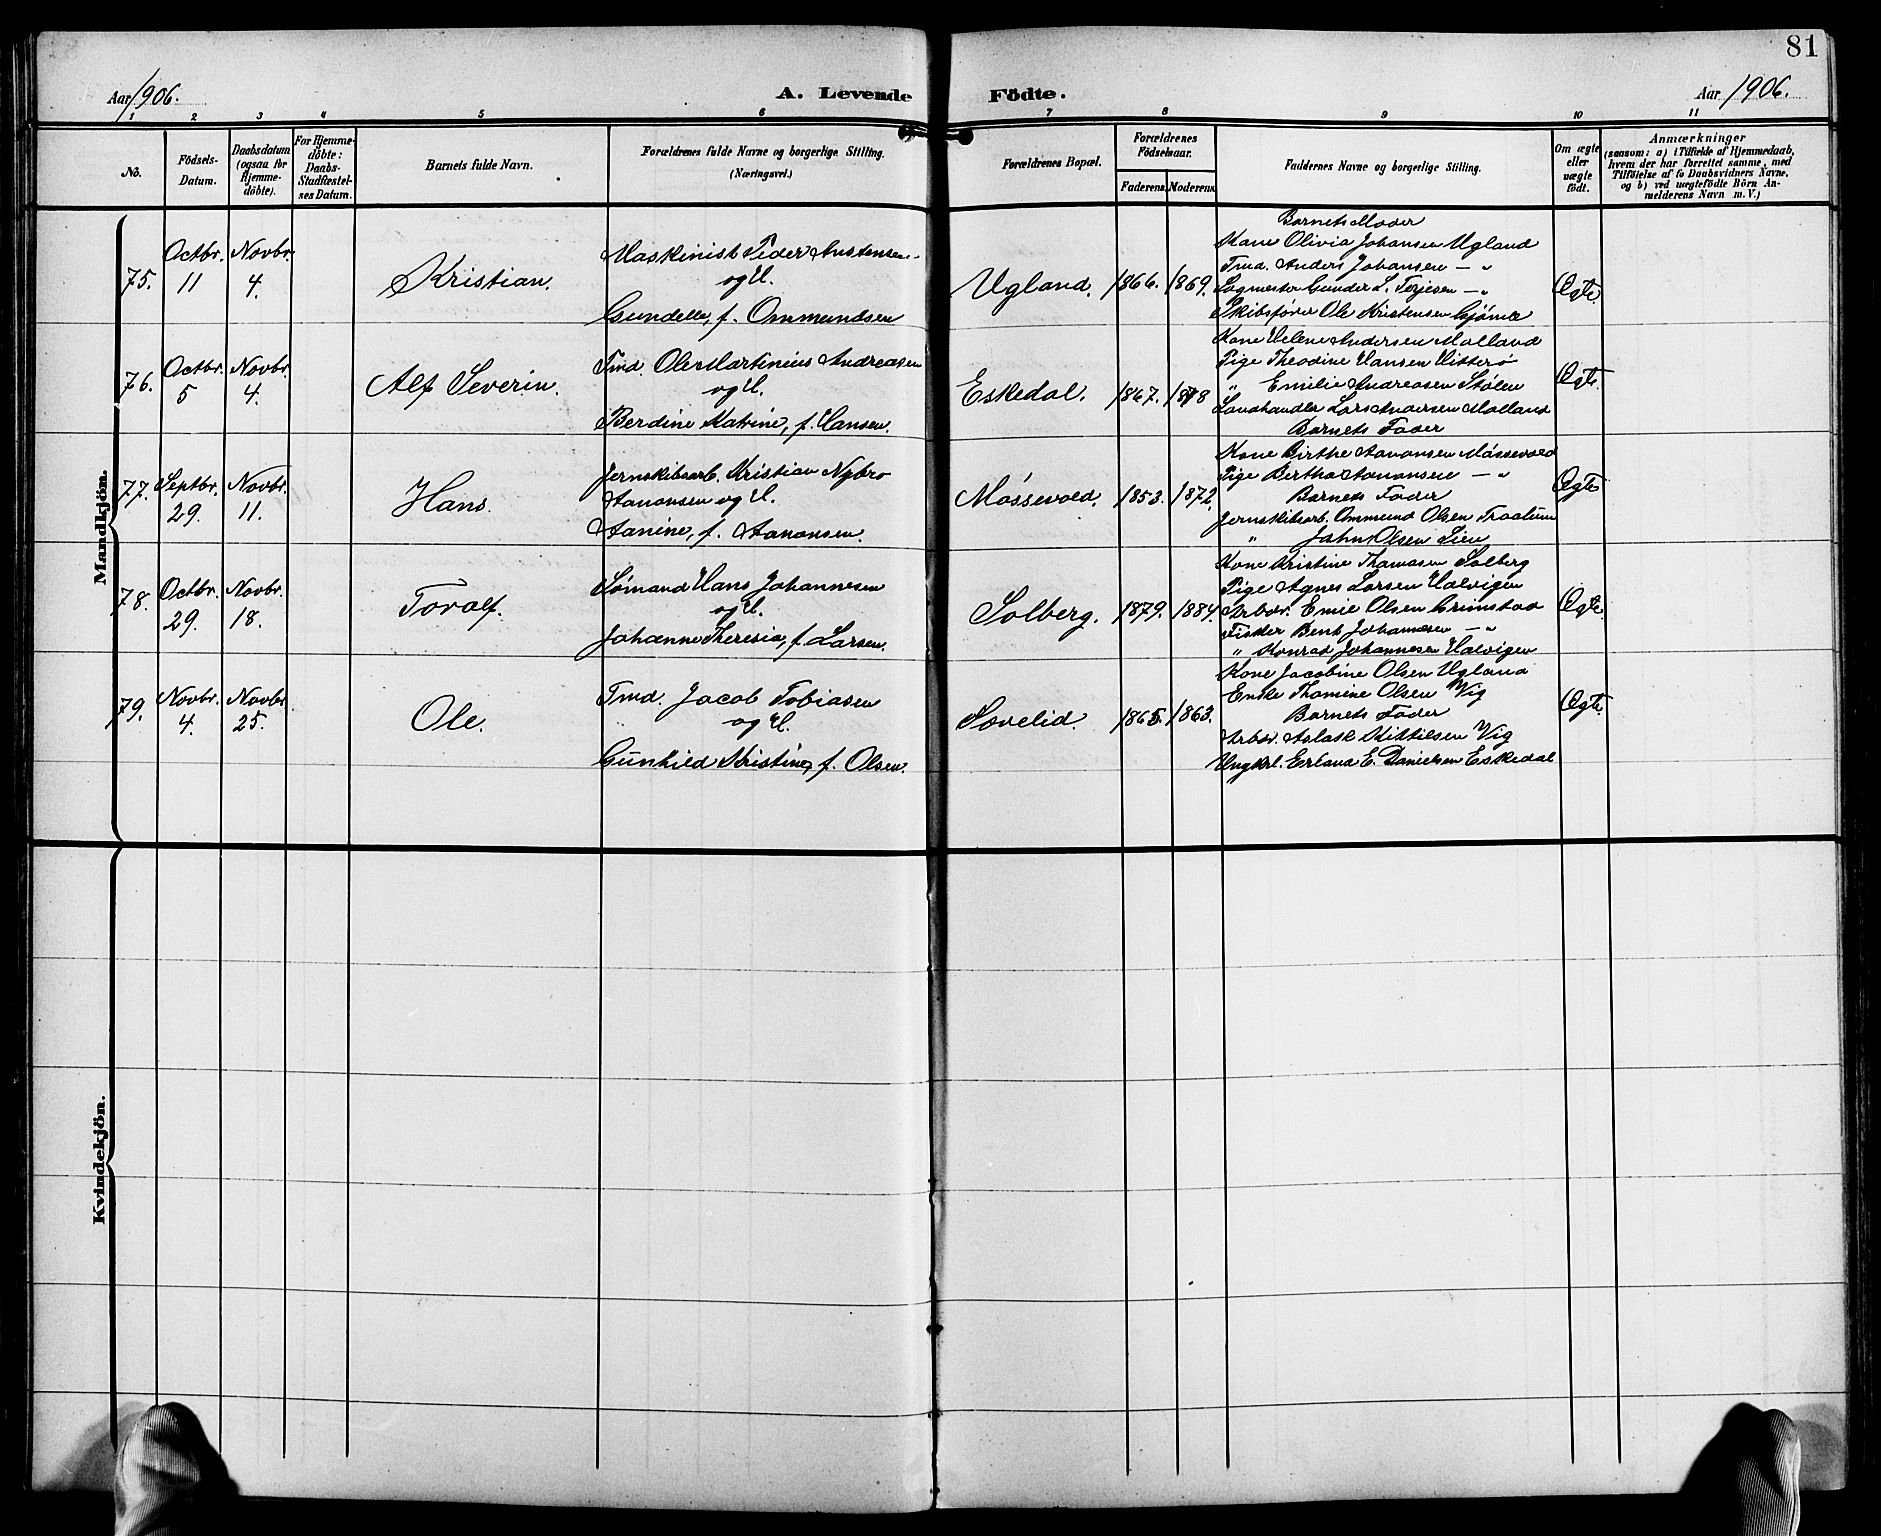 81
Aar 1906.
A. Levende Födte.
Aar 1906.
1 2 3 4 5 6 7 8 9 10 11
No.
Födsels-
Datum.
Daabsdatum
(ogsaa for
Hjemme-
döbte).
For Hjemme-
döbte:
Daabs-
Stadfæstel-
ses Datum.
Barnets fulde Navn.
Forældrenes fulde Navne og borgerlige Stilling.
(Næringsvei.)
Forældrenes Bopæl.
Forældrenes
Födselsaar.
Faderens.
Moderens.
Faddernes Navne og borgerlige Stilling.
Om ægte
eller
uægte
födt.
Anmærkninger
(saasom: a) i Tilfælde af Hjemmedaab,
hvem der har forrettet samme, med
Tilföielse af to Daabsvidners Navne,
og b) ved uægtefödte Börn An-
melderens Navn m. V.)
Mandkjön.
75.
Octbr.
11
Novbr.
4.
Kristian.
Maskinist Peder Austensen
og H.
Gundelle, f. Ommundsen
Ugland.
1866.
1869.
Barnets Moder
Kone Olivia Johansen Ugland
Tmd. Anders Johansen — "
Gunder L. Terjesen — "
Skibsfører Ole Kristensen
Ægte.
76.
Octbr.
5
Novbr.
4.
Alf Severin.
Tmd. Ole Martinius Andreasen
og H.
Berdine Katrine, f. Hansen.
Eskedal.
1867.
1878
Kone Helene Andersen Molland
Pige Theodine Hansen Hisserø
" Emilie Andreasen Stølen
Landhandler Lars Andersen Molland
Barnets Fader
Ægte.
77.
Septbr.
29.
Novbr.
11.
Hans.
Jernskibsarb. Kristian Nybro
Aanonsen og H.
Aanine, f. Aanonsen.
Møssevold.
1853.
1872.
Kone Birthe Aanonsen Møssevold
Pige Bertha Aanonsen — "
Barnets Fader
Jernskibsarb. Ommund Olsen Traatum
" John Olsen Lien
Ægte
78.
Octbr.
29.
Novbr.
18.
Toralf.
Sømand Hans Johannesen
og H.
Johanne Theresia, f. Larsen.
Solberg.
1879.
1884.
Kone Kristine Thomasen Solberg
Pige Agnes Larsen Hasvigen
Arbdr. Emil Olsen Grimstad
Fisker Bent Johannesen — "
" Konrad Johannesen Hasvigen
Ægte.
79.
Novbr.
4.
Novbr.
25.
Ole.
Tmd. Jacob Tobiasen
og H.
Gunhild Kristine, f. Olsen.
Sovelid.
1865.
1863.
Kone Jacobine Olsen Ugland
Enke Thomine Olsen Vig
Barnets Fader
Arbdr. Aslak Kittilsen Vig
Ungkrl. Erland E. Danielsen Eskedal
Ægte.
Kvindekjön.